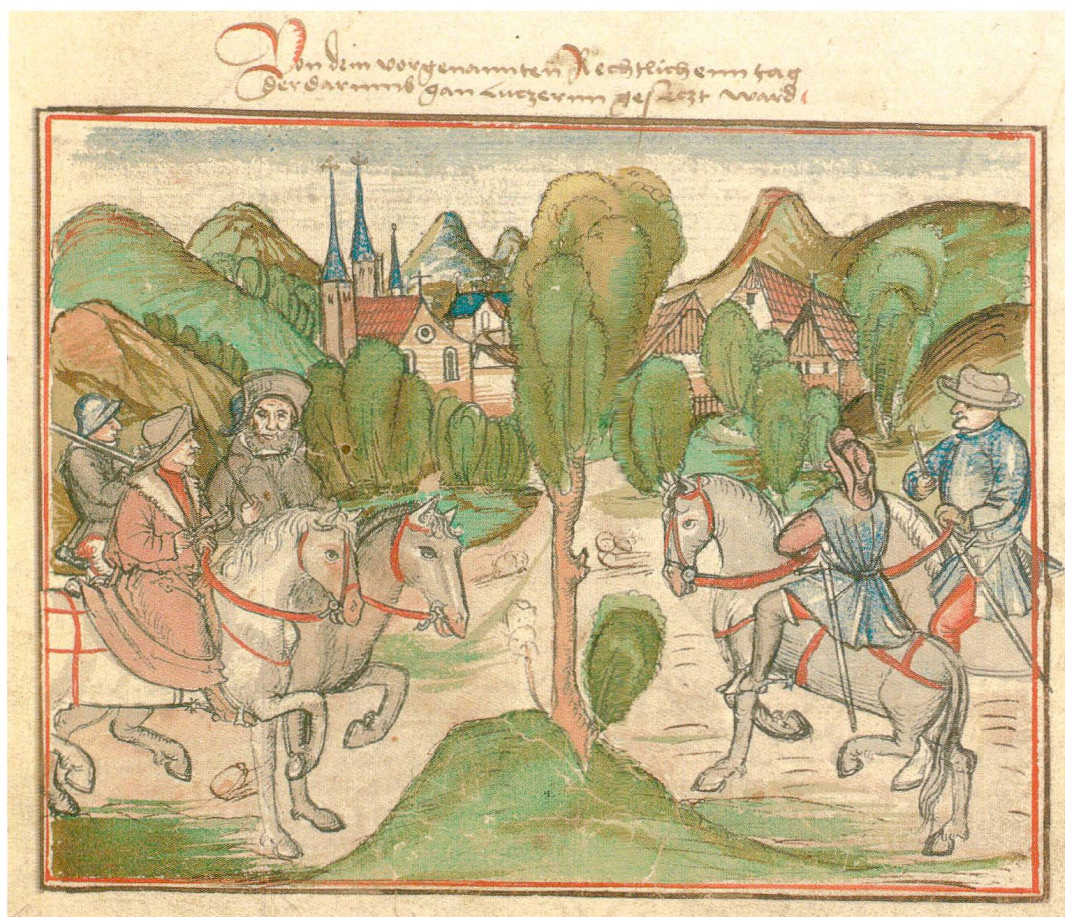 Von dem vorgenannten Rechtlichenn tag
der darumb gan Lutzernn gesetzt ward